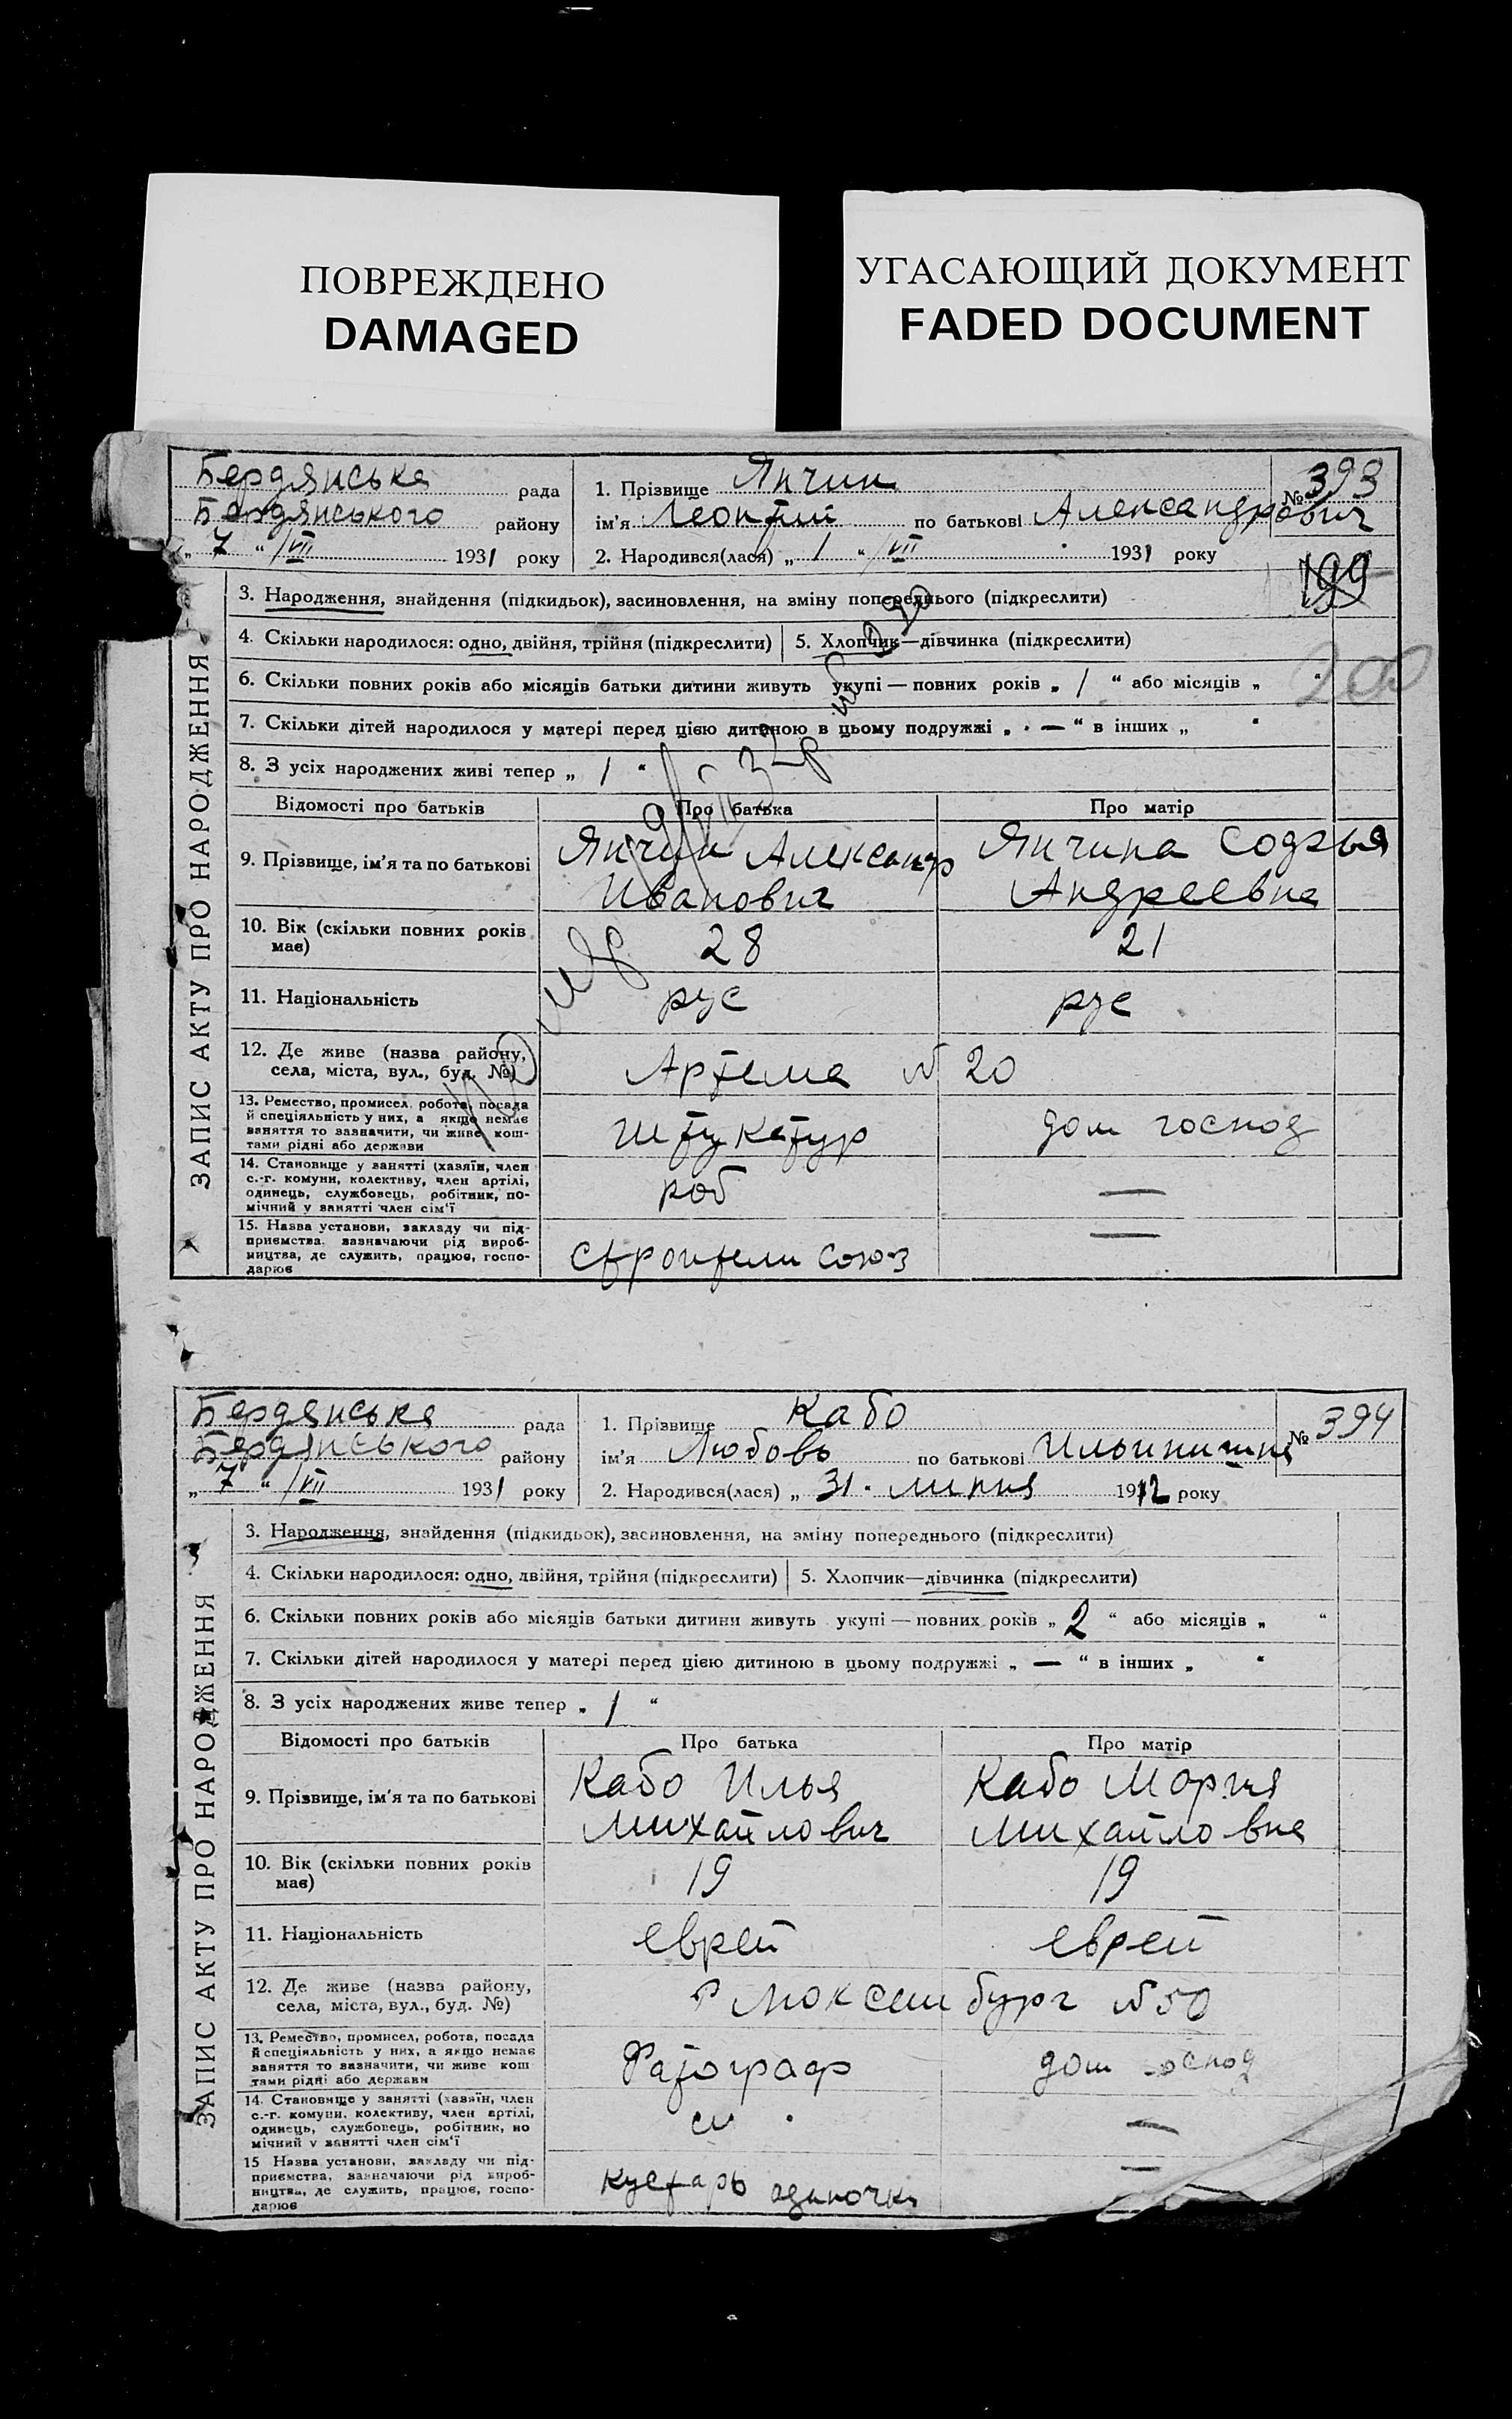 ПОВРЕЖДЕНО
DAMAGED
УГАСАЮЩИЙ ДОКУМЕНТ
FADED DOCUMENT
ЗАПИС АКТУ ПРО НАРОДЖЕННЯ
Бердянська рада
Бердянського району
„ 7 “ /VII 1931 року
1. Прізвище Янчин
№ 393
ім'я Леонтий по батькові Александрович
2. Народився(лася) „ 1 “ /VII 1931 року
199
3. Народження, знайдення (підкидьок), засиновлення, на зміну попереднього (підкреслити)
4. Скільки народилося: одно, двійня, трійня (підкреслити) 5. Хлопчик—дівчинка (підкреслити)
200
6. Скільки повних років або місяців батьки дитини живуть укупі — повних років „ 1 “ або місяців „ “
7. Скільки дітей народилося у матері перед цією дитиною в цьому подружжі „ — “ в інших „ “
8. З усіх народжених живі тепер „ 1 “
Відомості про батьків Про батька Про матір
9. Прізвище, ім'я та по батькові Янчин Александр Иванович Янчина Софья Андреевна
10. Вік (скільки повних років має) 28 21
11. Національність рус рус
12. Де живе (назва району, села, міста, вул., буд. №) Артема № 20
13. Ремество, промисел, робота, посада й спеціяльність у них, а якщо немає заняття то зазначити, чи живе коштами рідні або держави Штукатур дом господ
14. Становище у занятті (хазяїн, член с.-г. комуни, колективу, член артілі, одинець, службовець, робітник, помічний у занятті член сім'ї роб —
15. Назва установи, закладу чи підприємства, зазначаючи рід виробництва, де служить, працює, господарює Строители союз —
ЗАПИС АКТУ ПРО НАРОДЖЕННЯ
Бердянська рада
Бердянського району
„ 7 “ /VII 1931 року
1. Прізвище Кабо
№ 394
ім'я Любовь по батькові Ильинишна
2. Народився(лася) „ 31 . липня 1912 року
3. Народження, знайдення (підкидьок), засиновлення, на зміну попереднього (підкреслити)
4. Скільки народилося: одно, двійня, трійня (підкреслити) 5. Хлопчик—дівчинка (підкреслити)
6. Скільки повних років або місяців батьки дитини живуть укупі — повних років „ 2 “ або місяців „ “
7. Скільки дітей народилося у матері перед цією дитиною в цьому подружжі „ — “ в інших „ “
8. З усіх народжених живе тепер „ 1 “
Відомості про батьків Про батька Про матір
9. Прізвище, ім'я та по батькові Кабо Илья Михайлович Кабо Мария Михайловна
10. Вік (скільки повних років має) 19 19
11. Національність еврей еврей
12. Де живе (назва району, села, міста, вул., буд. №) Р Люксембург № 50
13. Ремество, промисел, робота, посада й спеціяльність у них, а якщо немає заняття то зазначити, чи живе коштами рідні або держави Фатограф дом оспод
14. Становище у занятті (хазяїн, член с.-г. комуни, колективу, член артілі, одинець, службовець, робітник, помічний у занятті член сім'ї —
15 Назва установи, закладу чи підприємства, зазначаючи рід виробництва, де служить, працює, господарює Кустарь одиночка —